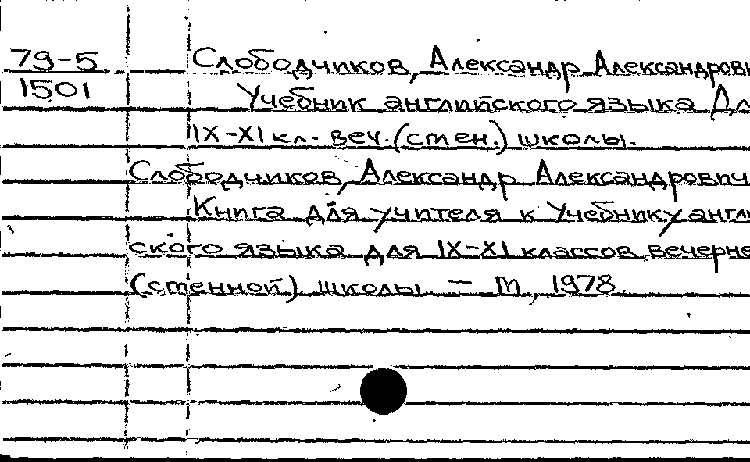 79-5 Слободчиков, Александр Александрови
1501 Учебник английского языка Дл
IX-XI кл. веч. (смен.) школы.
Слободчиков, Александр Александрович
Книга для учителя к Учебнику англ
ского языка для IX-XI классов вечерне
(сменной) школы. — М, 1978.